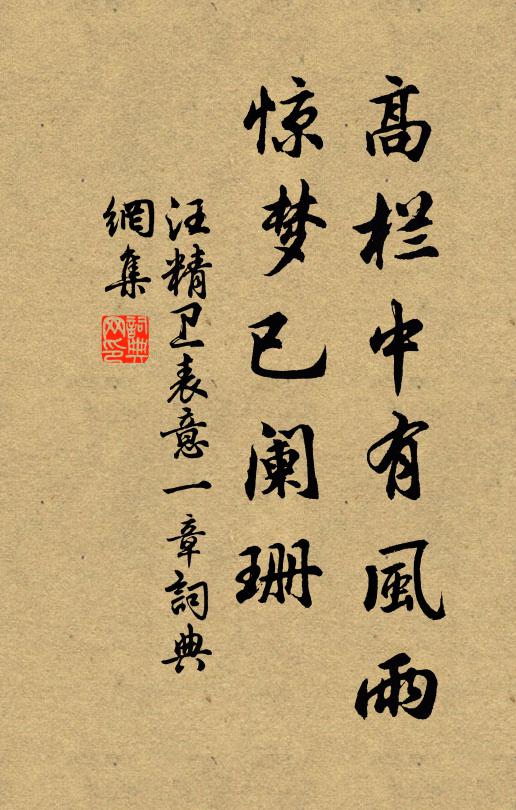 高栏中有風雨
惊梦已阑珊
汪精卫表意一章詞典
網集
詞典
网印